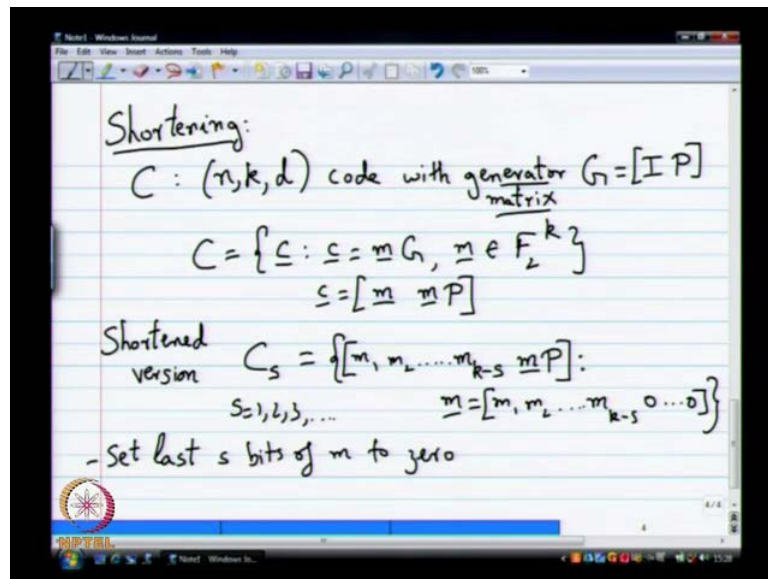 Note1 - Windows Journal
File Edit View Insert Actions Tools Help
100%
Shortening:
C : (n,k,d) code with generator matrix G = [I P]
C = { c : c = m G, m ∈ F₂ᵏ }
c = [m mP]
Shortened version C_s = { [m₁ m₂ ..... m_{k-s} mP] :
s=1,2,3,.... m = [m₁ m₂ ... m_{k-s} 0 ... 0] }
- Set last s bits of m to zero
4/4
4
NPTEL
Note1 - Windows Jo...
15:28